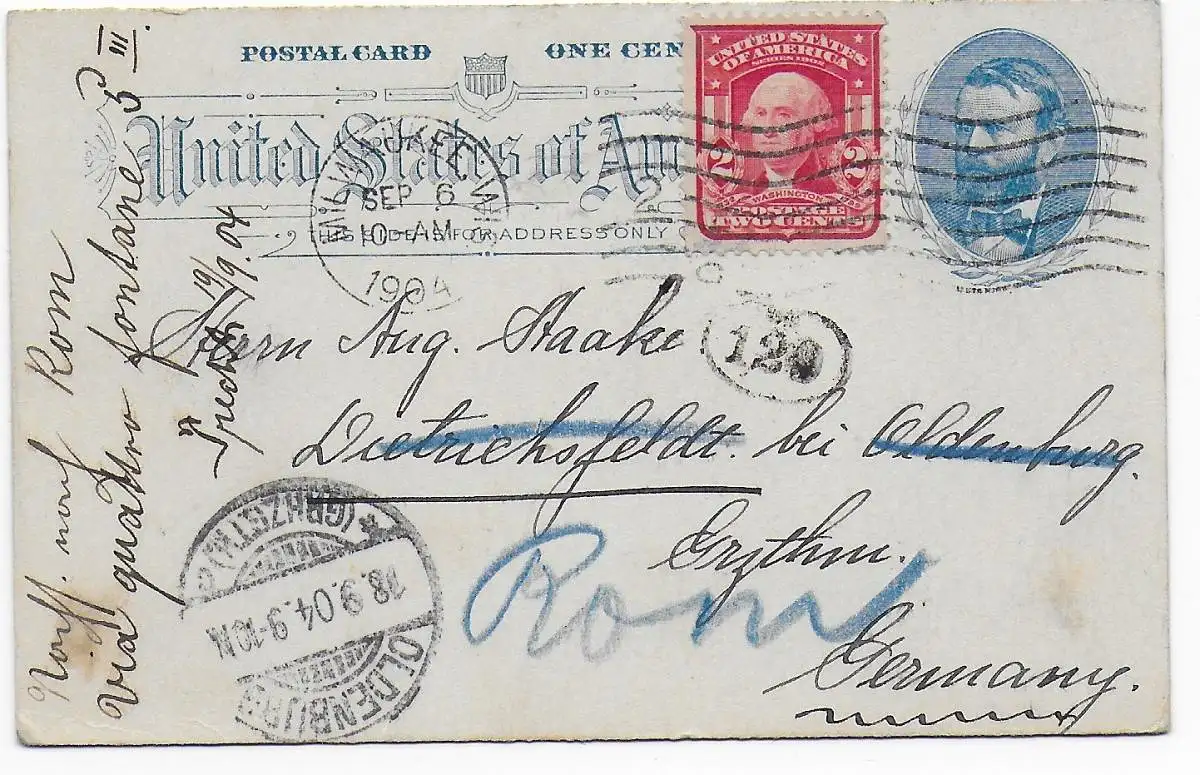 POSTAL CARD ONE CEN
United States of Am
THIS SIDE IS FOR ADDRESS ONLY
UNITED STATES
OF AMERICA
SERIES 1902
2 2
WASHINGTON
POSTAGE
TWO CENTS
MILWAUKEE, WIS
SEP 6
10-AM
1904
Herrn Aug. Staake
Dietrichsfeldt. bei Oldenburg.
Grzthm.
Germany.
129
Rom
nach Rom
via quattro fontane 5 III.
19/9.04
OLDENBURG
(GRHZGTM.)
18.9.04.9-10N.